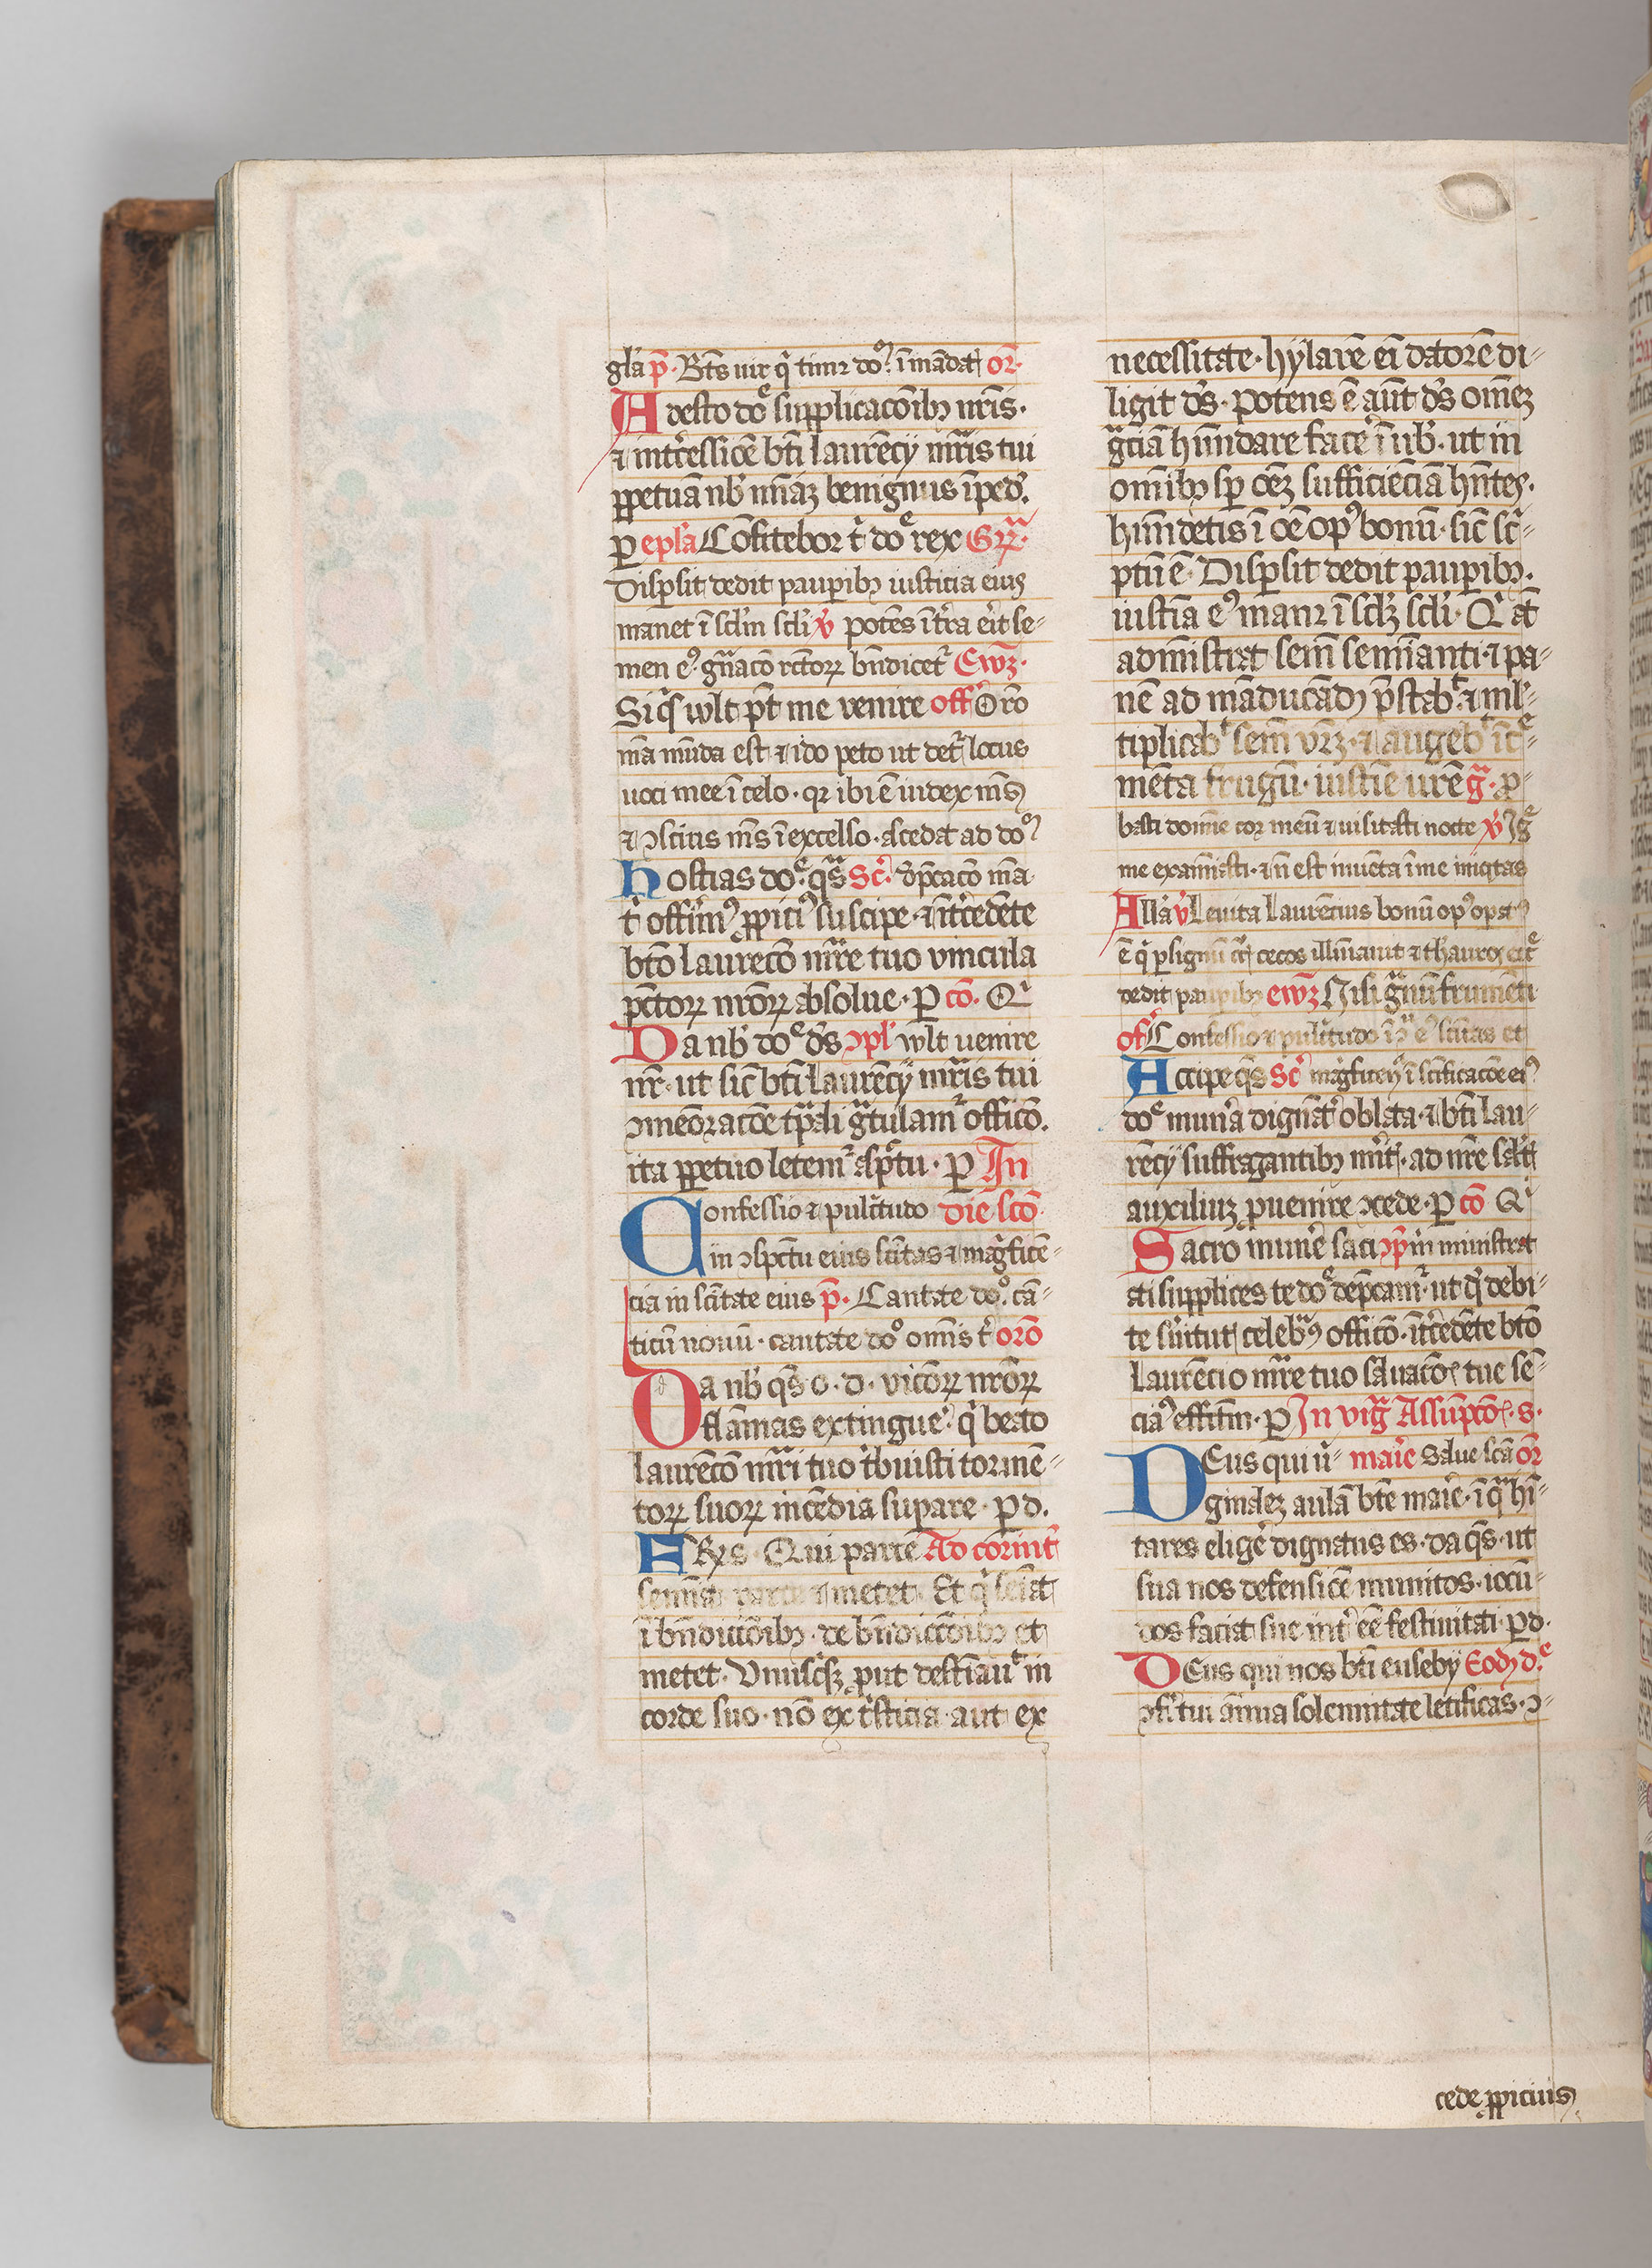 gl̄a p̄. Bt̄s uir q̇ timꝫ do͂ꝫ ī mādat᷑ or̄.
Adesto doᵉ supplicacōibꝫ nr̄is.
⁊ int̄cessiōe bt̄i laurēcij mr̄is tui
ꝑpetuā nb᷑ mīaꝫ benignus īped᷑.
ꝑ ep̄la Cōfitebor t᷑ doᵉ rex Gͬr̄.
Disꝑsit dedit pauꝑibꝫ iusticia eius
manet ī scl̄m scl̄i v̄ potēs īt̄ra er̄it se-
men eꝰ. gn̄acō rc̄toꝝ bn̄dicet᷑ Ewꝫ.
Si q̇s wlt pt̄ me venire off᷑ Orō
m̄a mūda est ⁊ ido peto ut det᷑ locus
uoci mee ī celo. qꝛ ibi ē iudex mꝰ
⁊ ↄscius mꝰ ī excelso. ascedat ad do͂ꝫ
Hostias doᵉ. qs̄ Sc᷑. dp̄cacō m̄a
t᷑ offīmꝰ ꝓpiciꝰ suscipe. ⁊ īt̄cedēte
bt̄o laurēcō mr̄e tuo vincula
pc̄toꝝ nr̄oꝝ absolue. ꝑ cō. Qͥ
Da nb᷑ doᵉ ds̄ ↄpl᷑ wlt uenire
nr̄. ut sic̄ bt̄i laurēcij mr̄is tui
ↄmeōracōe tp̄ali gͣtulam᷑ officō.
ita ꝑpetuo letem᷑ aspc̄tu. ꝑ In
Confessio ⁊ pulc̄tudo die scō
in ↄspc̄tu eius scītas ⁊ magͥficē-
cia in scītate eius p̄. Cantate do͂. cā-
ticū nouū. cantate doº omīs t᷑ orō
Da nb᷑ qs̄ o. d. vicōꝝ nr̄oꝝ
flāmas extingueᵉ. q̇ beato
laurēcō mr̄i tuo tͥbuisti tormē-
toꝝ suoꝝ incēdia suꝑare. ꝑ d.
FRes. Qui parce Ad corint᷑
semīat parce ⁊ metet. Et q̇ seīat
ī bn̄dicōibꝫ. de bn̄diccōibꝫ et
metet. Vnusq̇sqꝫ ꝓut destīauᵗ in
corde suo. nō ex tͥsticia aut ex
necessitate. hylarē ei datorē di-
ligit ds̄. Potens ē aūt ds̄ omēꝫ
gͣciā hūndare faceᵉ ī ub᷑. ut in
omībꝫ sꝑ oēꝫ sufficiēciā hn̄tes.
hūndetis ī oē opꝰ bonū. sic̄ scͥ-
ptū ē. Disꝑsit dedit pauꝑibꝫ.
iustīa eꝰ manꝫ ī scl̄ꝫ scl̄i. Qͥ at̄
admīstrat semē semīanti. ⁊ pa-
nē ad māducādꝫ p̄stabᵗ. ⁊ ml̄-
tiplicabᵗ semē vr̄ꝫ. ⁊ augebᵗ īcᵉ-
mēta frugū. iustīe ure ḡ. ꝓ-
basti domīe cor meū ⁊ uisitasti nocte v̄ Ig̅
me examīasti. ⁊ n̄ est inuēta ī me iniq̇tas
All᷑a v̄ Leuita Laurēcius bonū opꝰ opatꝰ
ē q̇ ꝑ signū crͨ cecos illīauit ⁊ thauros ecᵉ
dedit pauꝑibꝫ ewꝫ Nisi gͣnū frumēti
of᷑ Confessio ⁊ pulc̄tudo ī ↄ eꝰ scītas et
Accipe qs̄ Sc᷑ magͥficēꝫ ī scīficacōe eiꝰ
doᵉ muna dignat᷑ oblata. ⁊ bt̄i lau-
rēcij suffragantibꝫ mīt᷑. ad nr̄e saꝉt᷑
auxiliuꝫ ꝓuenire ↄcede. ꝑ cō Qͥ
Sacro munē saci ↄp᷑ m̄ ministrat
ati supplices te doᵉ dep̄camᵘ ut q᷑ debi-
te sͥuitut᷑ celebͣmꝰ officō. īt̄cedēte bt̄o
Laurēcio mr̄e tuo saluacōꝭ tue sē-
ciaꝰ effc̄m. ꝑ In vig᷑ Assūpcōꝭ. s.
DEus qui u᷑- maīe Salue scā or̄
ginaleꝫ aulā bt̄e maīe. ī qͣ hī-
tares eligeᵉ dignatus es. da qs̄. ut
sua nos defensiōe munitos. iocū-
dos faciat sue intᵉeē festiuitati. ꝑ d.
DEus qui nos bt̄i eusebij Eodꝫ dᵉ
ↄf᷑ tui ānua solennitate letificas. ↄ-
cede ꝓpicius